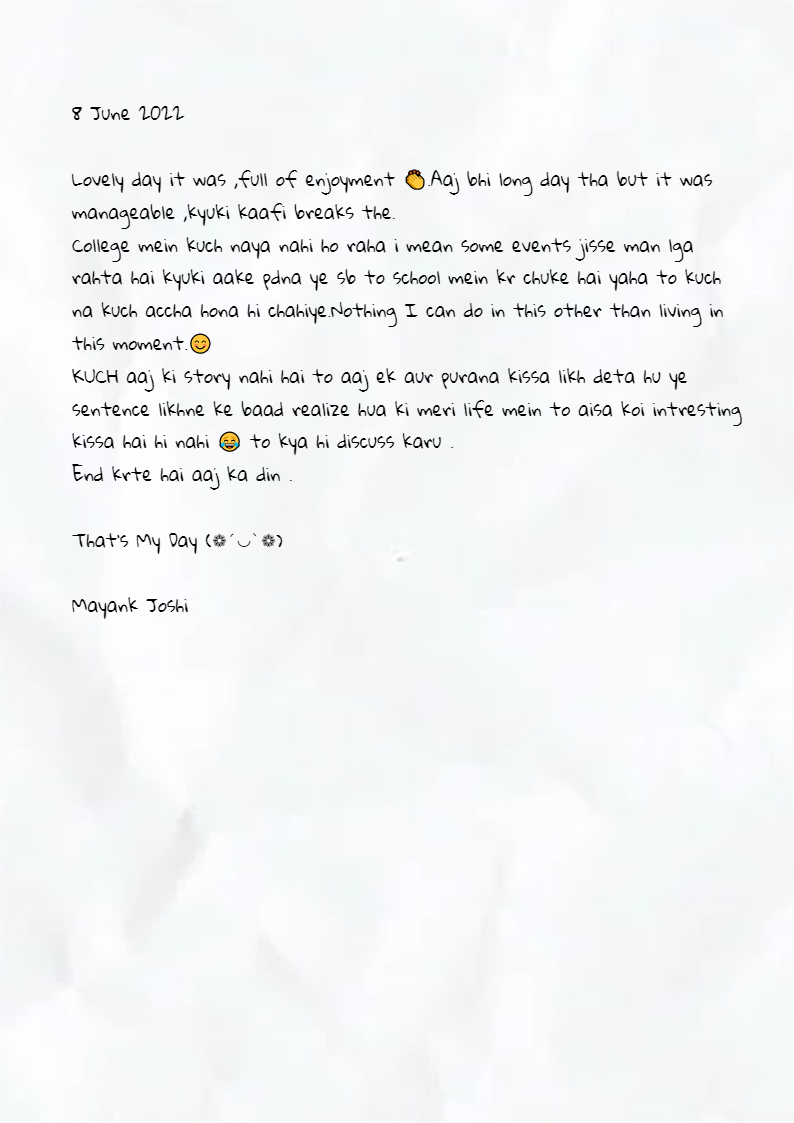 8 June 2022
Lovely day it was ,full of enjoyment 👏.Aaj bhi long day tha but it was
manageable ,kyuki kaafi breaks the.
College mein kuch naya nahi ho raha i mean some events jisse man lga
rahta hai kyuki aake pdna ye sb to school mein kr chuke hai yaha to kuch
na kuch accha hona hi chahiye.Nothing I can do in this other than living in
this moment.😊
KUCH aaj ki story nahi hai to aaj ek aur purana kissa likh deta hu ye
sentence likhne ke baad realize hua ki meri life mein to aisa koi intresting
kissa hai hi nahi 😂 to kya hi discuss karu .
End krte hai aaj ka din .
That's My Day (❁´◡`❁)
Mayank Joshi